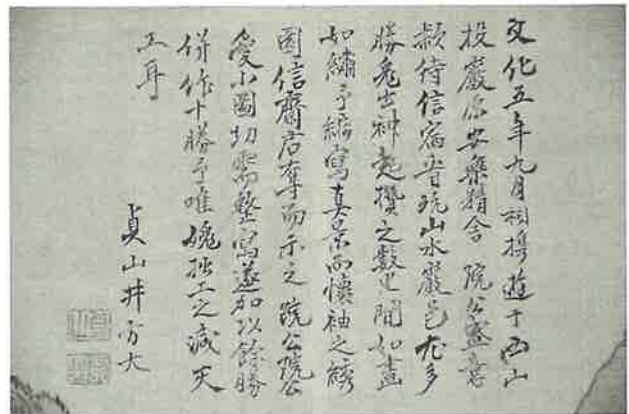 文化五年九月相携遊于西山
投巖原安樂精舎 院公盛意
款待信宿皆玩山水巖邑尤多
勝鬼出神起攢之數里間如畫
如繡予縮寫真景而懷袖之
圖信齋君奪而示之 院公院公
愛小圖切需整寫遂加以餘勝
併作十勝予唯媿拙工之減天
工耳
貞山井方大